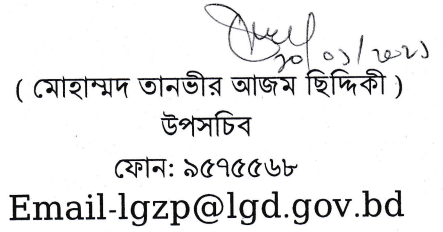 ২০/০১/২০২১
( মোহাম্মদ তানভীর আজম ছিদ্দিকী )
উপসচিব
ফোন: ৯৫৭৫৫৬৮
Email-lgzp@lgd.gov.bd